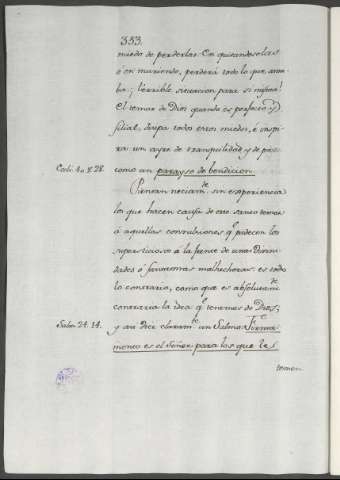 353.
miedo de perderlas. En quitandoselas
ó en muriendo, perderá todo lo que ama-
ba: ¡terrible situacion para si misma!
El temor de Dios quando es perfecto y
filial, disipa todos estos miedos, è inspi-
ra un ayre de tranquilidad y de paz
Ecli. 40. v. 28.
como un parayso de bendicion.
Piensan neciamte. sin experiencia
los que hacen causa de este santo temor
á aquellas convulsiones qe. padecen los
supersticiosos á la frente de unas Divini-
dades ó fantasmas malhechoras. es todo
lo contrario, como que es absolutamte.
contraria la idea qe. tenemos de Dios;
Salm. 24. 14.
y asi dice claramte. un Salmo: Firma-
mento es el Señor para los que le
temen